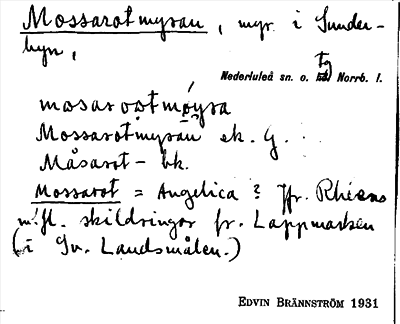 Mossarotmyran, myr i Sunder-
byn,
Nederluleå sn. o. tg Norrb. l.
mosarootmøyra
Mossarotmyran ek. G.
Måsarot- bk.
Mossarot = Angelica? Jfr. Rhéens
m. fl. skildringar fr. Lappmarken
(i Sv. Landsmålen.)
EDVIN BRÄNNSTRÖM 1931